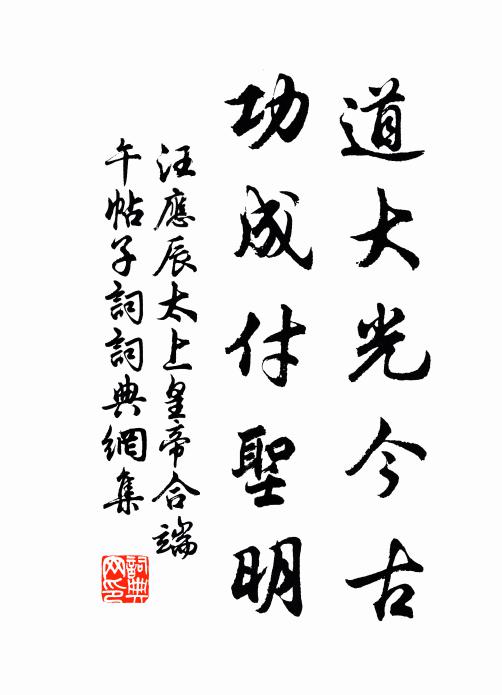 道大光今古
功成付聖明
汪應辰太上皇帝合端
午帖子詞詞典網集
詞典網印